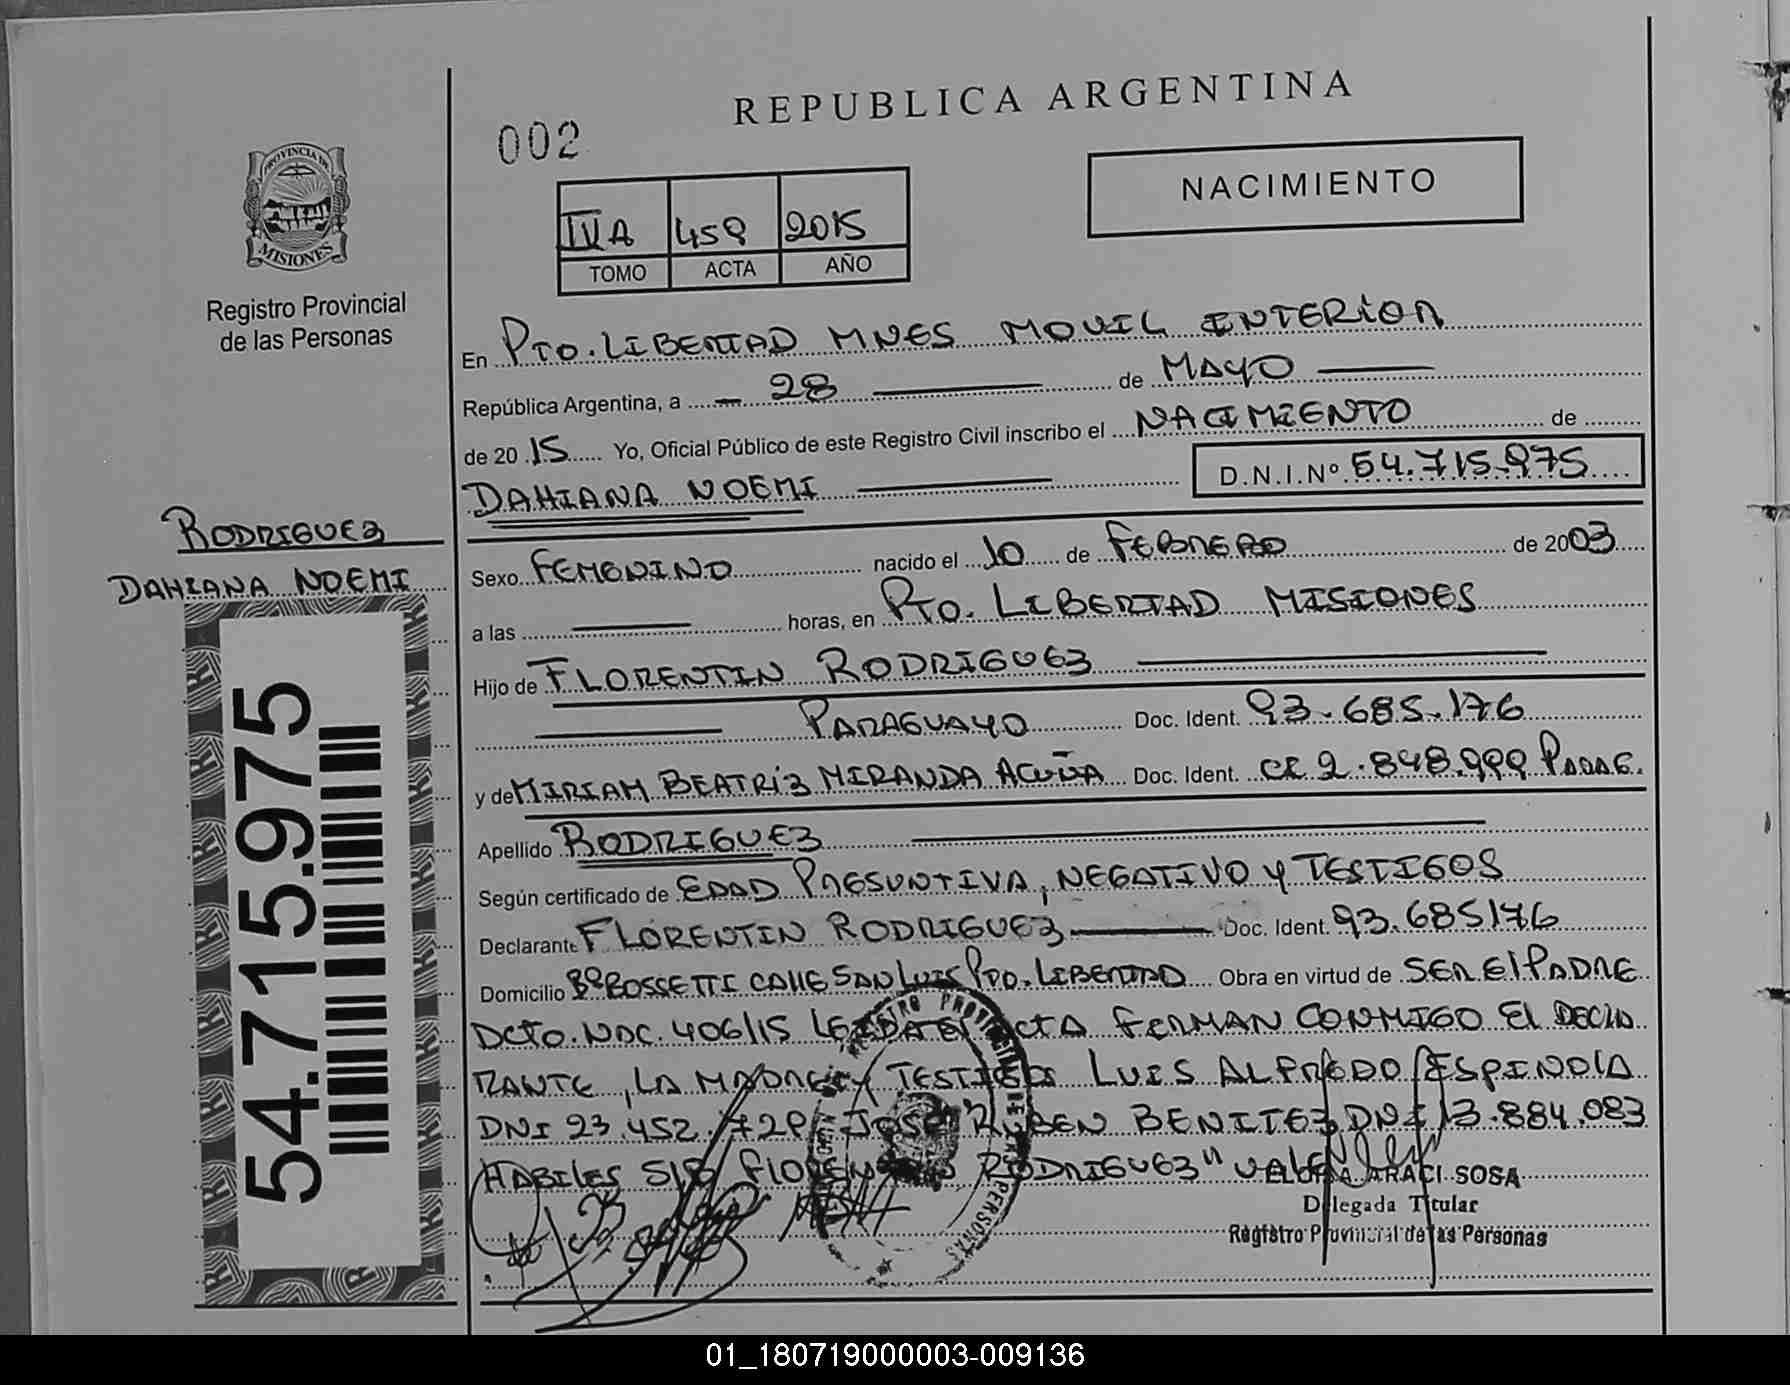 REPUBLICA ARGENTINA
002
NACIMIENTO
PROVINCIA DE
MISIONES
Registro Provincial
de las Personas
IVA 459 2015
TOMO ACTA AÑO
En PTO. LIBERTAD MNES MOVIL INTERIOR
República Argentina, a 28 de MAYO
de 2015 Yo, Oficial Público de este Registro Civil inscribo el NACIMIENTO de
DAHIANA NOEMI D.N.I.Nº 54.715.975
RODRIGUEZ
DAHIANA NOEMI
54.715.975
Sexo FEMENINO nacido el 10 de FEBRERO de 2003
a las horas, en PTO. LIBERTAD MISIONES
Hijo de FLORENTIN RODRIGUEZ
PARAGUAYO Doc. Ident. 93.685.176
y de MIRIAM BEATRíZ MIRANDA ACUÑA Doc. Ident. CI 2.848.999 PARAG.
Apellido RODRIGUEZ
Según certificado de EDAD PRESUNTIVA, NEGATIVO y TESTIGOS
Declarante FLORENTIN RODRIGUEZ Doc. Ident. 93.685176
Domicilio Bº ROSSETTI CALLE SAN LUIS PTO. LIBERTAD Obra en virtud de SER El PADRE
DCTO. NAC. 406/15 LEIDA EL ACTA FERMAN CONMIGO El DECLA
RANTE, LA MADRE Y TESTIGOS LUIS ALFREDO ESPINDOLA
DNI 23.452.729 JOSE RUBEN BENITEZ DNI 13.884.083
HABILES S/B FLORENTIN RODRIGUEZ" VALE
ELOISA ARACI SOSA
Delegada Titular
Registro Provincial de las Personas
01_180719000003-009136